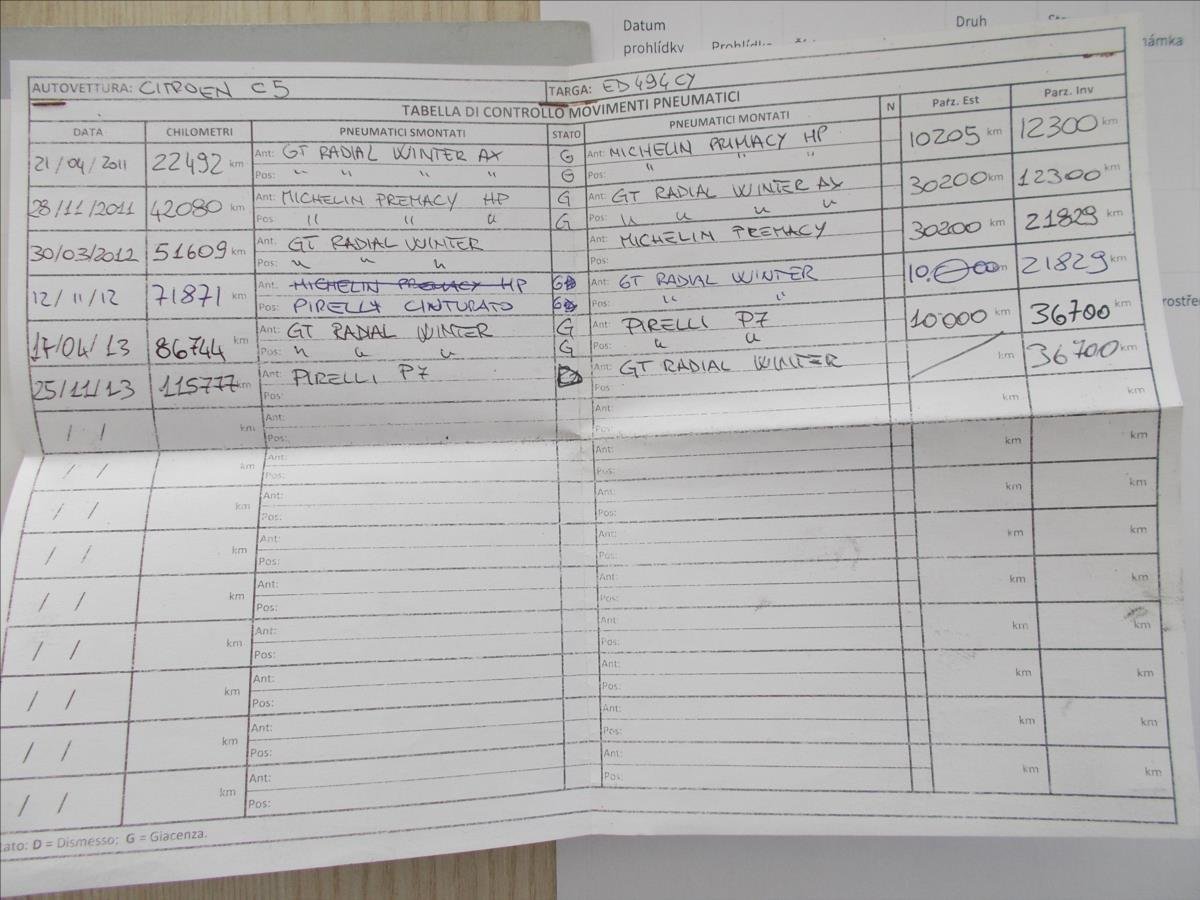 Datum Druh
prohlídky
AUTOVETTURA: CITROEN C5 TARGA: ED494CY
TABELLA DI CONTROLLO MOVIMENTI PNEUMATICI
DATA CHILOMETRI PNEUMATICI SMONTATI STATO PNEUMATICI MONTATI N Parz. Est Parz. Inv
21/04/2011 22492 km Ant: GT RADIAL WINTER AX G Ant: MICHELIN PRIMACY HP 10205 km 12300 km
Pos: " " " " G Pos: " " "
28/11/2011 42080 km Ant: MICHELIN PREMACY HP G Ant: GT RADIAL WINTER AX 30200 km 12300 km
Pos: " " " G Pos: " " " "
30/03/2012 51609 km Ant: GT RADIAL WINTER Ant: MICHELIN PREMACY 30200 km 21829 km
Pos: " " " Pos:
12/11/12 71871 km Ant: MICHELIN PREMACY HP G Ant: GT RADIAL WINTER 21829 km
Pos: PIRELLY CINTURATO G Pos: " "
17/04/13 86744 km Ant: GT RADIAL WINTER G Ant: PIRELLI P7 10000 km 36700 km
Pos: " " " G Pos: " "
25/11/13 115777 km Ant: PIRELLI P7 Ant: GT RADIAL WINTER km 36700 km
Pos: Pos:
/ / km Ant: Ant: km km
Pos: Pos:
/ / km Ant: Ant: km km
Pos: Pos:
/ / km Ant: Ant: km km
Pos: Pos:
/ / km Ant: Ant: km km
Pos: Pos:
/ / km Ant: Ant: km km
Pos: Pos:
/ / km Ant: Ant: km km
Pos: Pos:
/ / km Ant: Ant: km km
Pos: Pos:
/ / km Ant: Ant: km km
Pos: Pos:
/ / km Ant: Ant: km km
Pos: Pos:
ato: D = Dismesso; G = Giacenza.